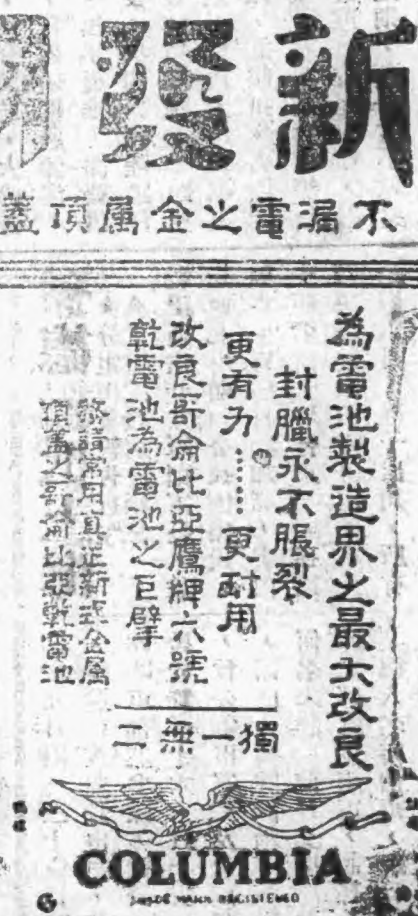 新發明
不漏電之金属頂蓋
為電池製造界之最大改良
封臘永不脹裂
更有力……更耐用
改良哥侖比亞鷹牌六號
乾電池為電池之巨擘
務請常用真正新式金属
頂蓋之哥侖比亞乾電池
獨一無二
COLUMBIA
TRADE MARK REGISTERED